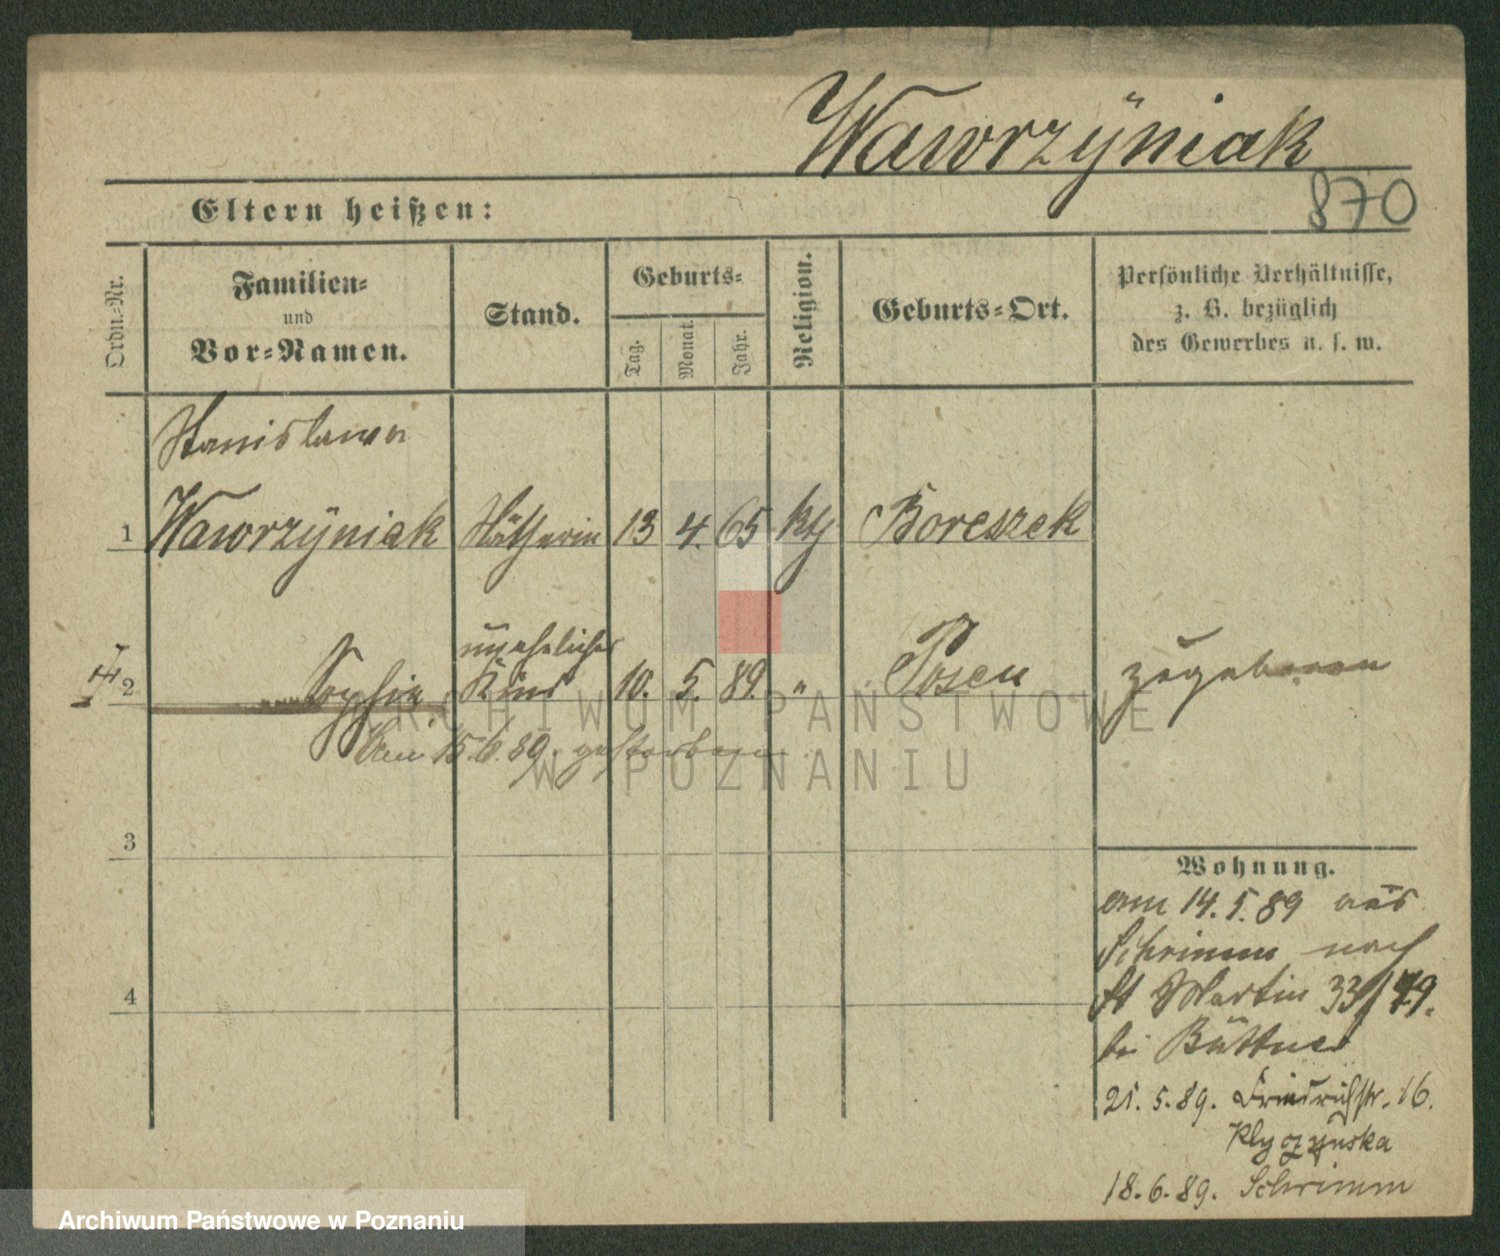 Wawrzÿniak
870
Eltern heißen:
Ordn.-Nr.
Familien-
und
Vor-Namen.
Stand.
Geburts-
Tag.
Monat.
Jahr.
Religion.
Geburts-Ort.
Persönliche Verhältnisse,
z. B. bezüglich
des Gewerbes u. s. w.
Stanislawa
1 Wawrzÿniak Nätherin 13 4. 65 kth Boreszek
unehelicher
2 Sophia Kind 10. 5. 89. " Posen zugeboren
Am 15.6.89. gestorben
3
4
Wohnung.
am 14.5.89 aus
Schrimm nach
St Martin 33/79.
bei Büttner
21.5.89. Friedrichstr. 16.
Klyczynska
18.6.89. Schrimm
ARCHIWUM PAŃSTWOWE
W POZNANIU
Archiwum Państwowe w Poznaniu